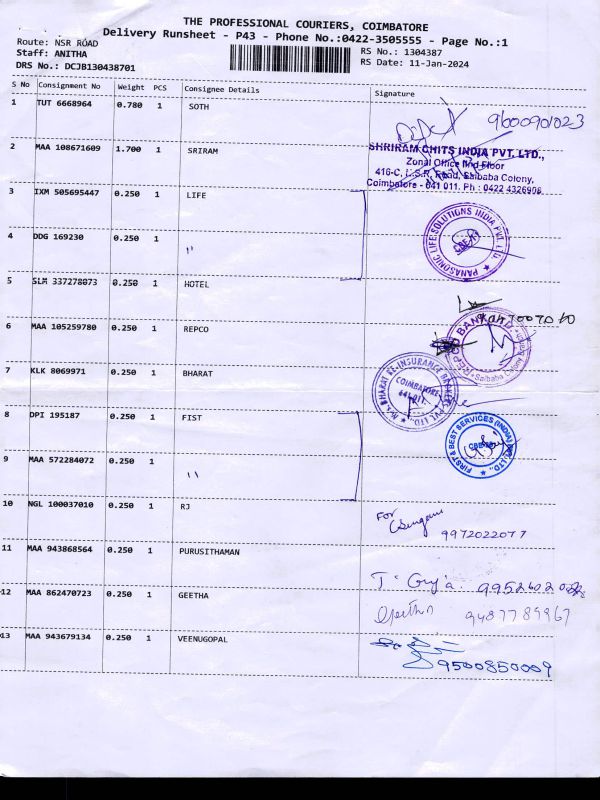 THE PROFESSIONAL COURIERS, COIMBATORE
Delivery Runsheet - P43 - Phone No.:0422-3505555 - Page No.:1
Route: NSR ROAD
Staff: ANITHA
DRS No.: DCJB130438701
RS No.: 1304387
RS Date: 11-Jan-2024
S No Consignment No Weight PCS Consignee Details Signature
1 TUT 6668964 0.780 1 SOTH 9600901023
2 MAA 108671609 1.700 1 SRIRAM
SHRIRAM CHITS INDIA PVT. LTD.,
Zonal Office IInd Floor
416-C, N.S.R. Road, Saibaba Colony,
Coimbatore - 641 011. Ph : 0422 4326908
3 IXM 505695447 0.250 1 LIFE
PANASONIC LIFE SOLUTIONS INDIA PVT. Ltd.
4 DDG 169230 0.250 1 "
5 SLM 337278073 0.250 1 HOTEL
6 MAA 105259780 0.250 1 REPCO
REPCO BANK LTD
Saibaba Colony
7 KLK 8069971 0.250 1 BHARAT
M/s. BHARAT RE-INSURANCE BROKERS PVT. LTD.,
COIMBATORE
641 011
8 DPI 195187 0.250 1 FIST
FIRST & BEST SERVICES (INDIA) PVT. LTD.,
9 MAA 572284072 0.250 1 "
10 NGL 100037010 0.250 1 RJ For 9972022077
11 MAA 943868564 0.250 1 PURUSITHAMAN
12 MAA 862470723 0.250 1 GEETHA Geetha 9487789967
13 MAA 943679134 0.250 1 VEENUGOPAL 9500850009